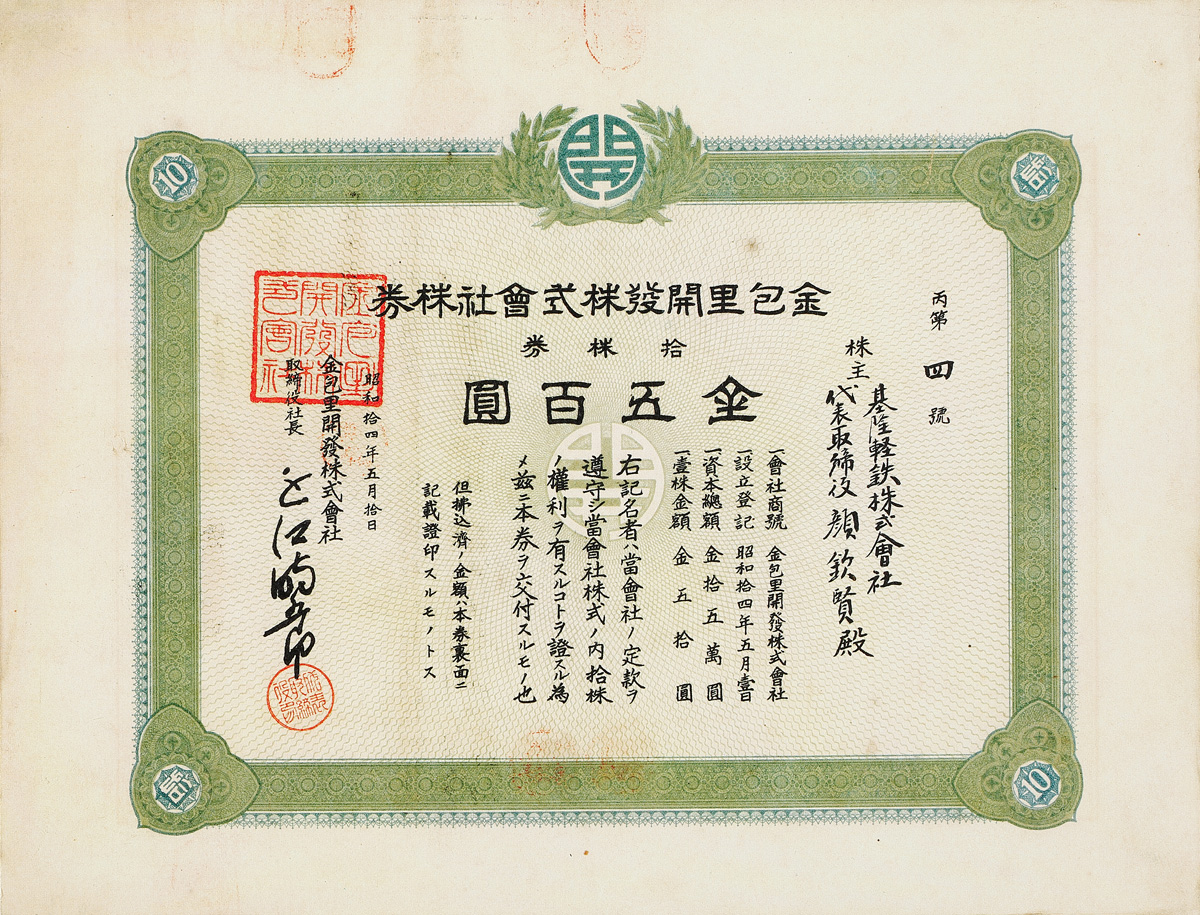 金包里開發株式會社株券
拾株券
金五百圓
丙第四號
株主
基隆軽鉄株式會社
代表取締役 顏欽賢殿
一會社商號 金包里開發株式會社
一設立登記 昭和拾四年五月壹日
一資本總額 金拾五萬圓
一壹株金額 金五拾圓
右記名者ハ當會社ノ定款ヲ
遵守シ當會社株式ノ内拾株
ノ權利ヲ有スルコトヲ證スル為
メ茲ニ本券ヲ交付スルモノ也
但拂込濟ノ金額ハ本券裏面ニ
記載證印スルモノトス
昭和拾四年五月拾日
金包里開發株式會社
取締役社長
金包里
開發株
式會社
10
拾
拾
10